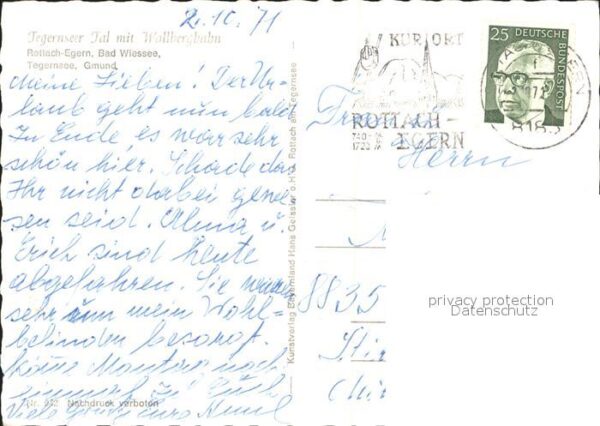 2. 10. 71
Tegernseer Tal mit Wallbergbahn
Rottach-Egern, Bad Wiessee,
Tegernsee, Gmund
Meine Lieben! Der Ur-
laub geht nun bald
zu Ende es war sehr
schön hier. Schade das
Ihr nicht dabei gewe-
sen seid. Alma u.
Erich sind heute
abgefahren. Sie waren
sehr um mein Wohl-
befinden besorgt.
noch
einmal zu Euch
Viele Grüße eure
Nr. 942 Nachdruck verboten
Kunstverlag Bayernland Hans Geissler o.H.G. Rottach am Tegernsee
KURORT
ROTTACH-
EGERN
740-
1722
25 DEUTSCHE
BUNDESPOST
818
Herrn
8835
privacy protection
Datenschutz